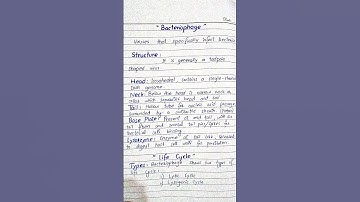 " Bacteriophage "
Viruses that specifically infect bacteria
Structure :
It is generally a tadpole
shaped virus
Head : Icosahedral, contains a single-
DNA genome
Neck : Below the head is narrow neck a
collar which connects head and tail
Tail : Hollow tube for nucleic acid passage
surrounded by a contractile sheath
Base Plate : Present at end tail,
tail fibers and
bacterial cell binding
Lysozyme : Enzyme at tail core released
to digest host cell wall for penetration
" Life Cycle "
Types : Bacteriophage shows two types of
life cycle :
1) Lytic Cycle
2) Lysogenic Cycle